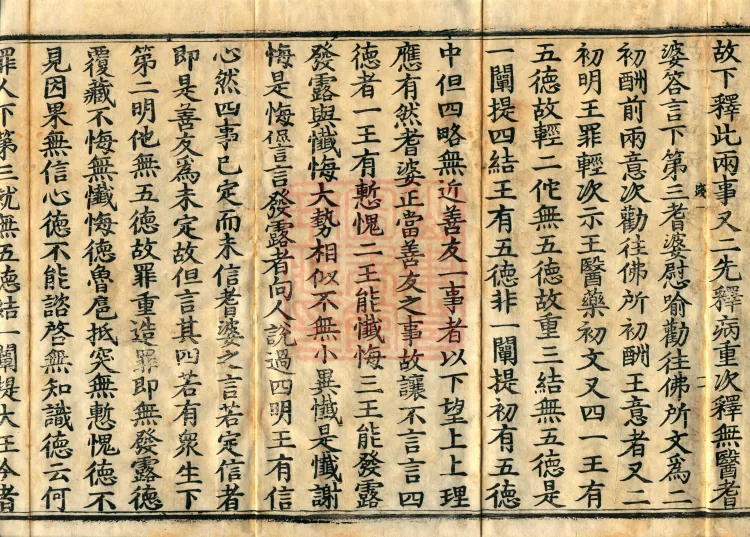 故下釋此兩事又二先釋病重次釋無醫耆
婆答言下第三耆婆慰喻勸往佛所文為二
初酬前兩意次勸往佛所初酬王意者又二
初明王罪輕次示王醫藥初文又四一王有
五德故輕二佗無五德故重三結無五德是
一闡提四結王有五德非一闡提初有五德
中但四略無近善友一事者以下望上上理
應有然者婆正當善友之事故讓不言言四
德者一王有慙愧二王能懺悔三王能發露
發露與懺悔大勢相似不無小異懺是懺謝
悔是悔言發露者向人說過四明王有信
心然四事已定而未信耆婆之言若定信者
即是善友為未定故但言其四若有衆生下
第二明他無五德故罪重造罪即無發露德
覆藏不悔無懺悔德魯扈抵突無慙愧德不
見因果無信心德不能諮啓無知識德云何
罪人下第三就無五德結一闡提大王今者